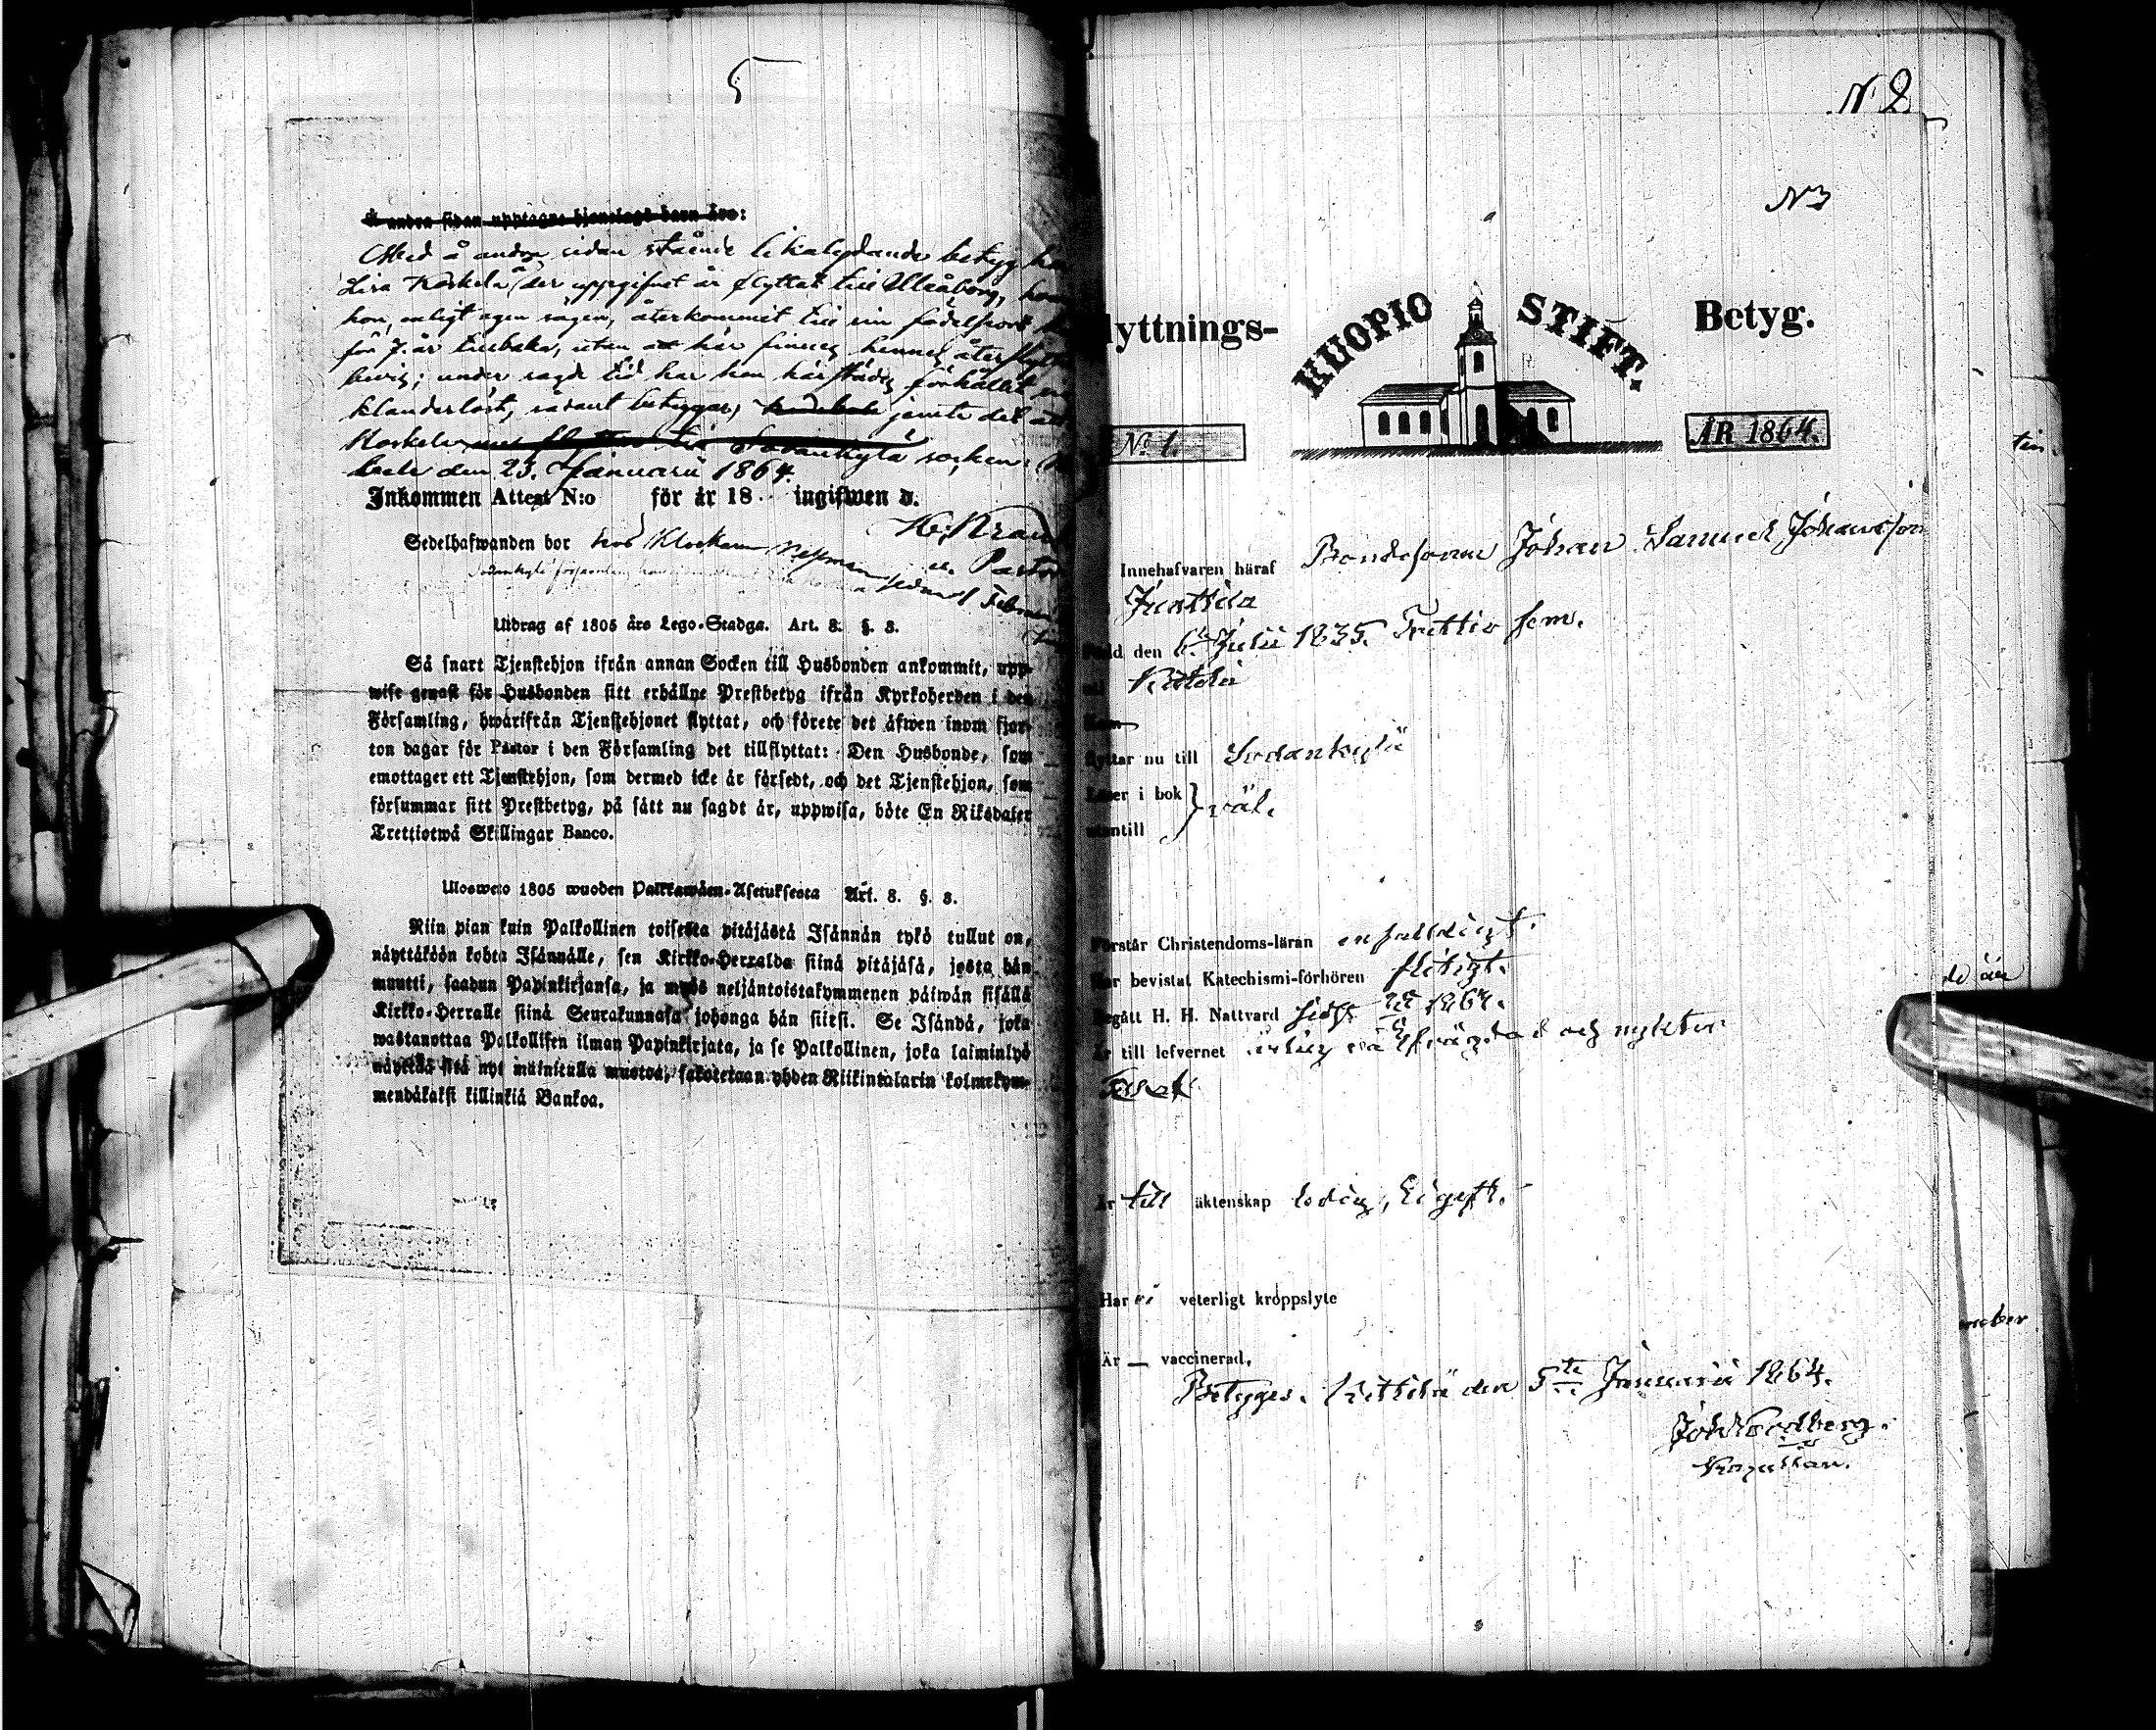 5
å andra sidan upptagne tjenstegd barn äro:
Med å andra sidan stående likalydande betyg
Lisa Koskela, der uppgifvet är flyttat till Uleåborg,
hon, enligt egen sägen, återkommit till sin födelseort
för 7. år tillbaka, utan att här finnes hennes återflyttnings
bevis; under sagde tid har hon härstädes förhållit sig
klanderlöst, sådant betygar, jemte det att
Koskela Sodankylä socken
den 23. Januarii 1864.
Inkommen Attest N:o för år 18 ingifwen d.
Sedelhafwanden bor hos Klockaren
Pastor
Utdrag af 1805 års Lego-Stadga. Art. 8. §. 3.
Så snart Tjenstehjon ifrån annan Socken till Husbonden ankommit, upp-
wise genast för Husbonden sitt erhållne Prestbetyg ifrån Kyrkoherden i den
Församling, hwarifrån Tjenstehjonet flyttat, och förete det äfwen inom fjor-
ton dagar för Pastor i den Församling det tillflyttat: Den Husbonde, som
emottager ett Tjenstehjon, som dermed icke är försedt, och det Tjenstehjon, som
försummar sitt Prestbetyg, på sätt nu sagdt är, uppwisa, böte En Riksdaler
Trettiotwå Skillingar Banco.
Uloswето 1805 wuoden Palkkawäen-Asetuksesta Art. 8. §. 3.
Niin pian kuin Palkollinen toisesta pitäjästä Isännän tykö tullut on,
näyttäköön kohta Isännälle, sen Kirkko-Herralda siinä pitäjäsä, josta hän
muutti, saadun Papinkirjansa, ja myös neljäntoistakymmenen päiwän sisällä
Kirkko-Herralle siinä Seurakunnasa johonga hän siirsi. Se Isändä, joka
wastanottaa Palkollisen ilman Papinkirjata, ja se Palkollinen, joka laiminlyö
näyttää sitä nyt mainitulla muotoa, sakotetaan yhden Riikintalarin kolmekym-
mendäkaksi killinkiä Bankoa.
N 2.
N 3
lyttnings- KUOPIO STIFT. Betyg.
No 1. ÅR 1864.
Innehafvaren häraf Bondesonen Johan Samuel Johansson
Junttila
Född den 6te Julii 1835. Trettio fem.
Kittilä
flyttar nu till Sodankylä
Läser i bok väl.
utantill
Förstår Christendoms-läran enfaldigt.
Har bevistat Katechismi-förhören flitigt.
Begått H. H. Nattvard sidst 1864.
Är till lefvernet och nykter
Är till äktenskap ledig, Ei gift.
Har ei veterligt kroppslyte
Är — vaccinerad,
Betyges. Kittilä den 5te Januarii 1864.
Joh Nordberg.
Kapellan.